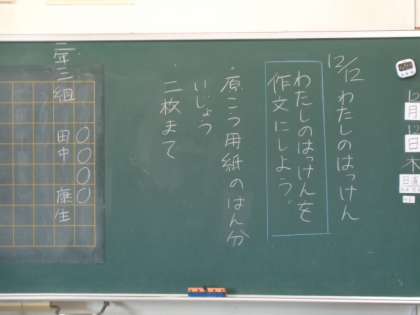 12/12 わたしのはっけん
わたしのはっけんを
作文にしよう。
・原こう用紙のはん分
いじょう
・二枚まで
二年三組
〇〇〇〇
田中 康生
月
日
木
日直